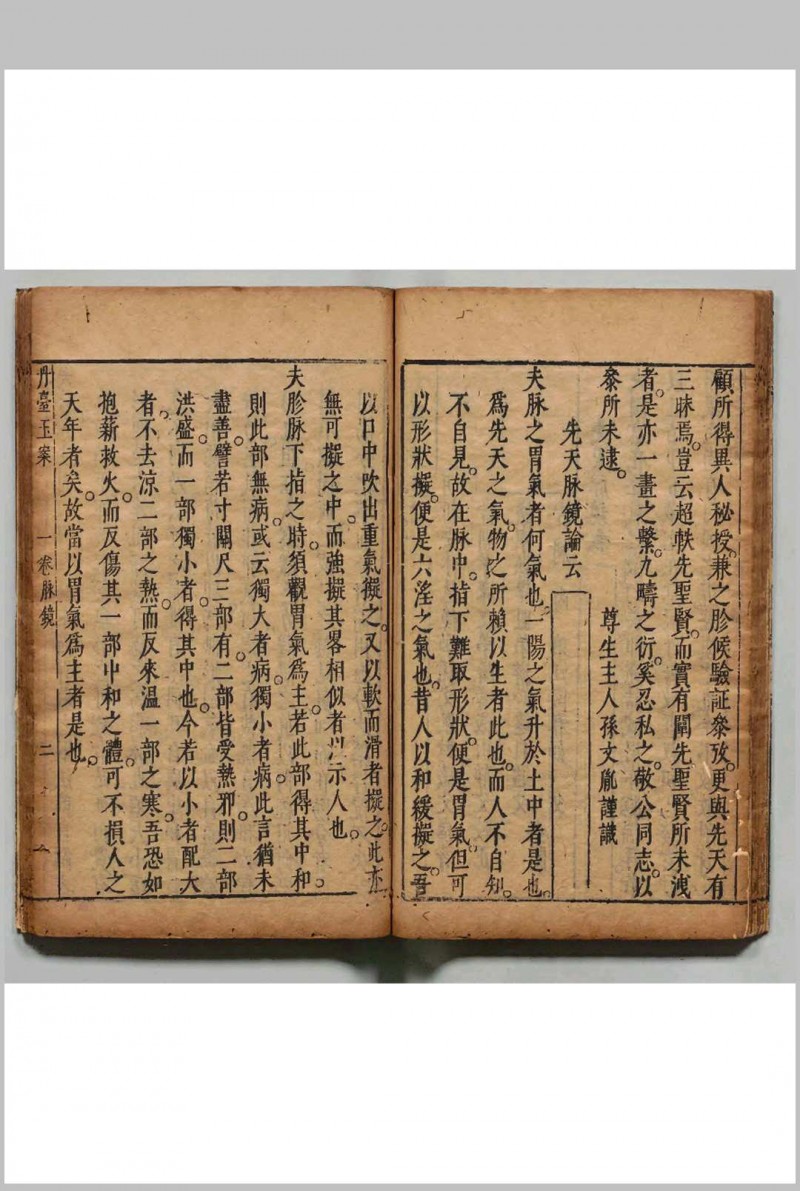 顧所得異人秘授。兼之胗候驗証叅攷。更與先天有
三昧焉。豈云超軼先聖賢。而實有闡先聖賢所未洩
者。是亦一畫之繫。九疇之衍。奚忍私之。敬公同志。以
叅所未逮。
尊生主人孫文胤謹識
先天脉鏡論云
夫脉之胃氣者何氣也。一陽之氣升於土中者是也。
爲先天之氣。物之所賴以生者此也。而人不自知。
不自見。故在脉中。指下難取形狀。便是胃氣。但可
以形狀擬。便是六淫之氣也。昔人以和緩擬之。吾
以口中吹出重氣擬之。又以軟而滑者擬之。此亦
無可擬之中。而強擬其畧相似者以示人也。
夫胗脉下指之時。須觀胃氣爲主。若此部得其中和。
則此部無病。或云獨大者病。獨小者病。此言猶未
盡善。譬若寸關尺三部。有二部皆受熱邪。則二部
洪盛。而一部獨小者。得其中也。今若以小者配大
者。不去涼二部之熱。而反來溫一部之寒。吾恐如
抱薪救火。而反傷其一部中和之體。可不損人之
天年者矣。故當以胃氣爲主者是也。
丹臺玉案 一卷脉鏡 二